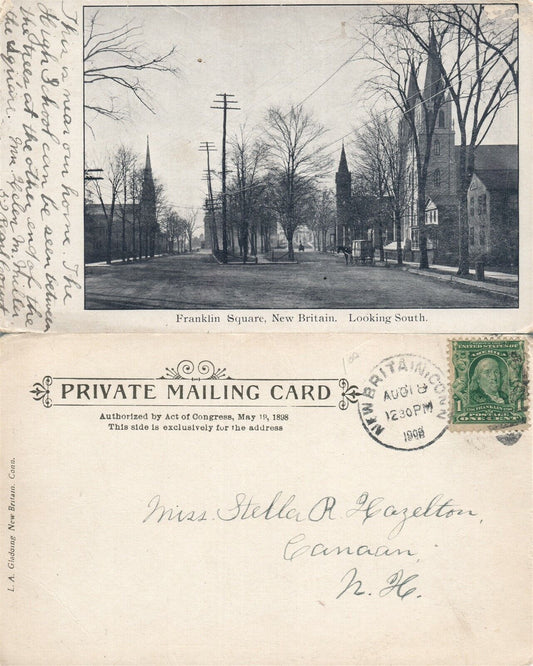 This is near our home. The
High School can be seen between
the trees at the other end of the
the Square. Helen M.
Court
Franklin Square, New Britain. Looking South.
PRIVATE MAILING CARD
Authorized by Act of Congress, May 19, 1898
This side is exclusively for the address
NEW BRITAIN, CONN.
AUG 18
12 30 PM
UNITED STATES
OF AMERICA
1
POSTAGE
ONE CENT
Miss. Stella R. Hazelton,
Canaan,
N. H.
New Britain, Conn.